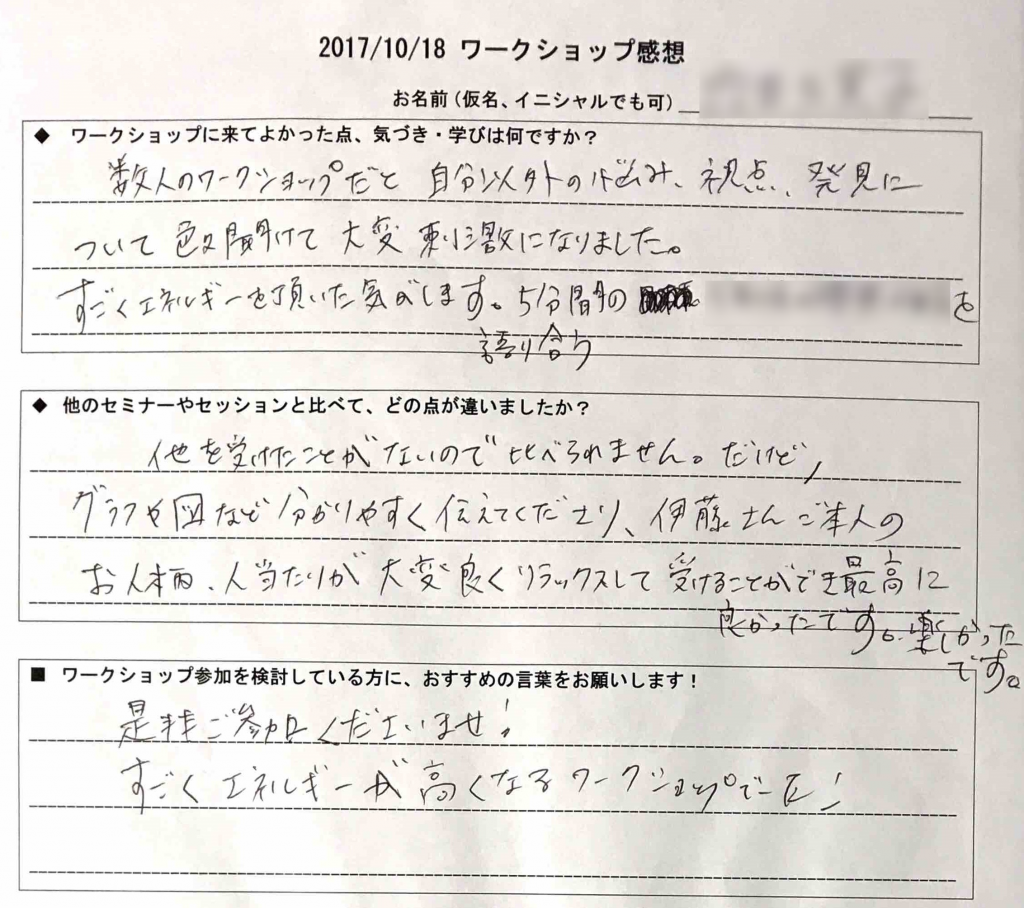 2017/10/18 ワークショップ感想
お名前(仮名、イニシャルでも可)
◆ ワークショップに来てよかった点、気づき・学びは何ですか？
数人のワークショップだと 自分以外の悩み、視点、発見に
ついて 色々聞けて 大変 刺激になりました。
すごくエネルギーを頂いた気がします。5分間の を
語り合う
◆ 他のセミナーやセッションと比べて、どの点が違いましたか？
他を受けたことがないので比べられません。だけど、
グラフや図など分かりやすく伝えてくださり、伊藤さんご本人の
お人柄、人当たりが 大変良くリラックスして 受けることができ最高に
良かったです。楽しかった
です。
■ ワークショップ参加を検討している方に、おすすめの言葉をお願いします！
是非ご参加くださいませ！
すごくエネルギーが高くなるワークショップでした！